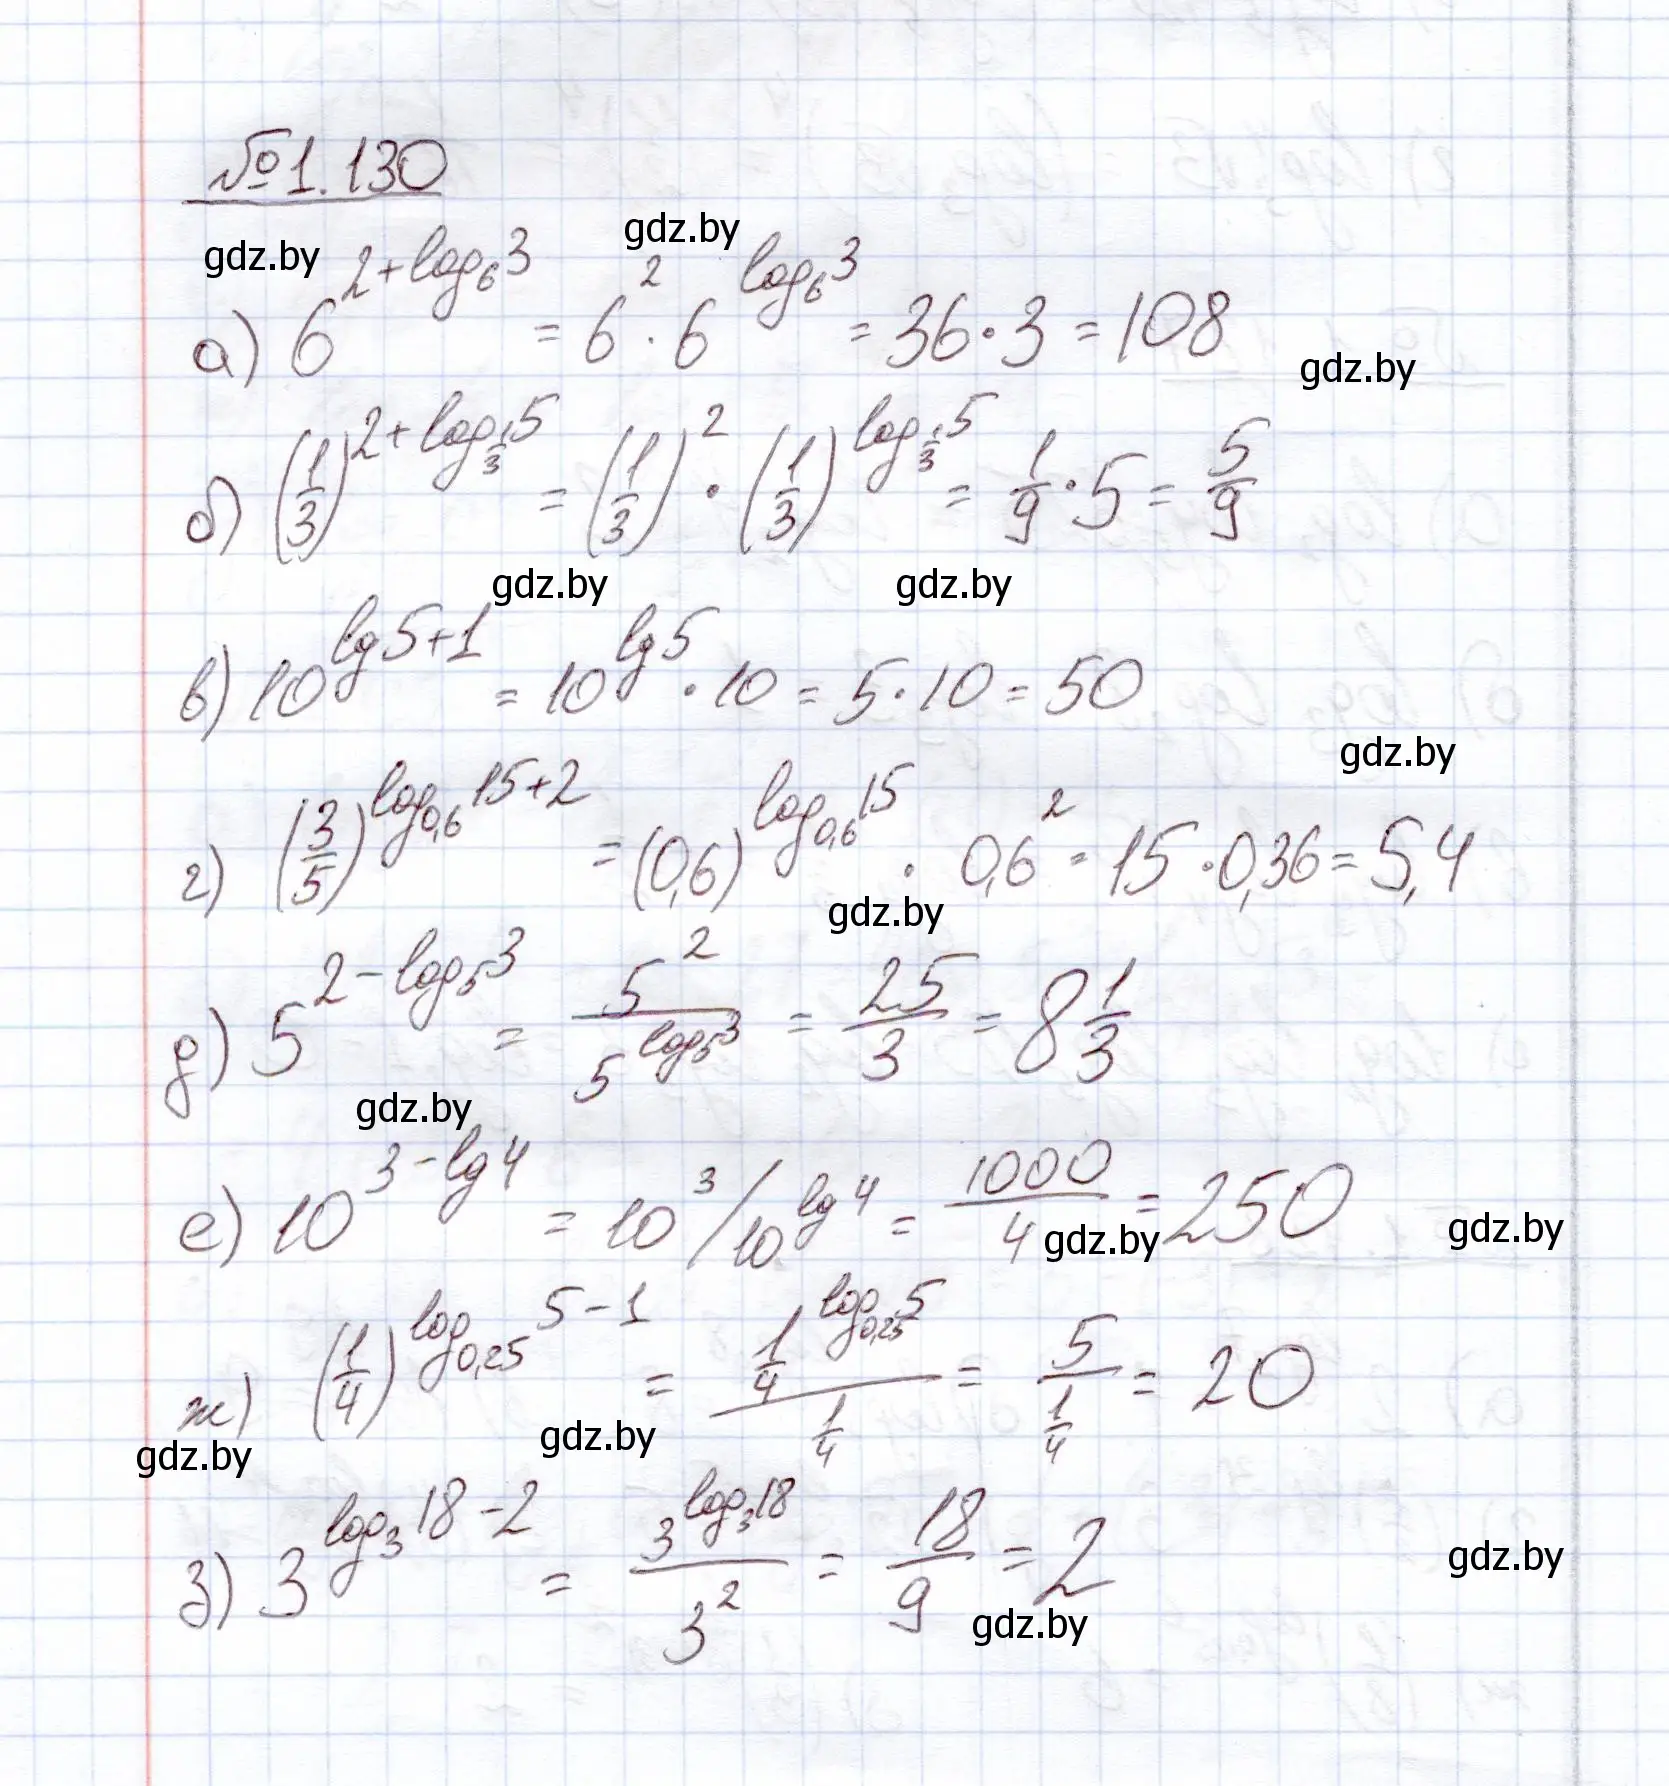 №1.130
gdz.by
gdz.by
а) 6^(2+log₆3) = 6² · 6^(log₆3) = 36·3 = 108
gdz.by
б) (1/3)^(2+log_(1/3)5) = (1/3)² · (1/3)^(log_(1/3)5) = 1/9 · 5 = 5/9
gdz.by
gdz.by
в) 10^(lg5+1) = 10^(lg5) · 10 = 5·10 = 50
gdz.by
г) (3/5)^(log_(0,6)15+2) = (0,6)^(log_(0,6)15) · 0,6² = 15·0,36 = 5,4
gdz.by
д) 5^(2-log₅3) = 5²/5^(log₅3) = 25/3 = 8 1/3
gdz.by
е) 10^(3-lg4) = 10³/10^(lg4) = 1000/4 = 250
gdz.by
gdz.by
ж) (1/4)^(log_(0,25)5-1) = (1/4^(log_(0,25)5))/(1/4) = 5/(1/4) = 20
gdz.by
gdz.by
з) 3^(log₃18-2) = 3^(log₃18)/3² = 18/9 = 2
gdz.by
gdz.by